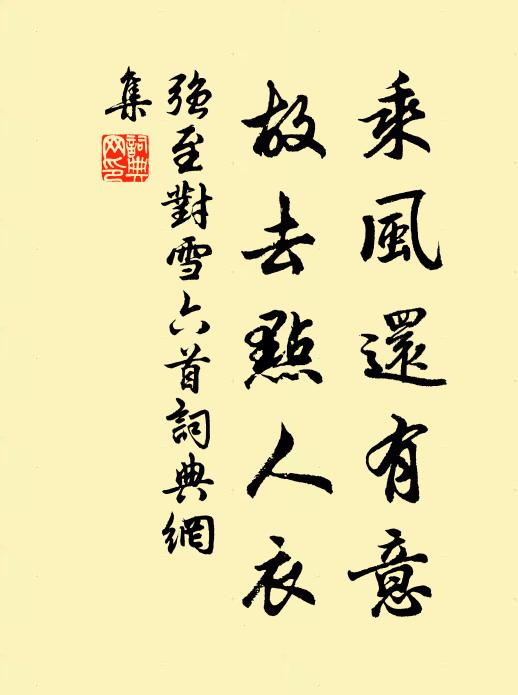 乘風還有意
故去點人衣
強至對雪六首詞典網
集
詞典網印